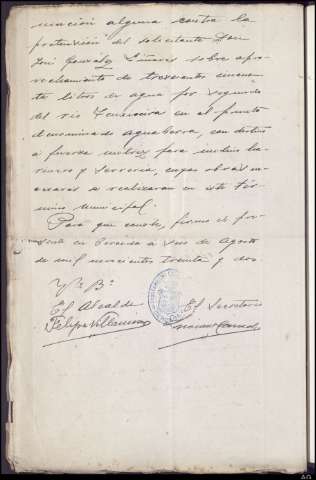 mación alguna contra la
pretensión del solicitante Don
José González Liñares sobre apro-
vechamiento de trescientos cincuen-
ta litros de agua por segundo
del río en el punto
denominado agualevra, con destino
á fuerza motriz para molino ha-
rinero y serrería, cuyas obras
se realizaran en este Tér-
mino Municipal.
Para que conste, firmo el pre-
sente en á seis de Agosto
de mil novecientos treinta y dos.
Vº Bº
El Alcalde
El Secretario
Felipe Villanueva